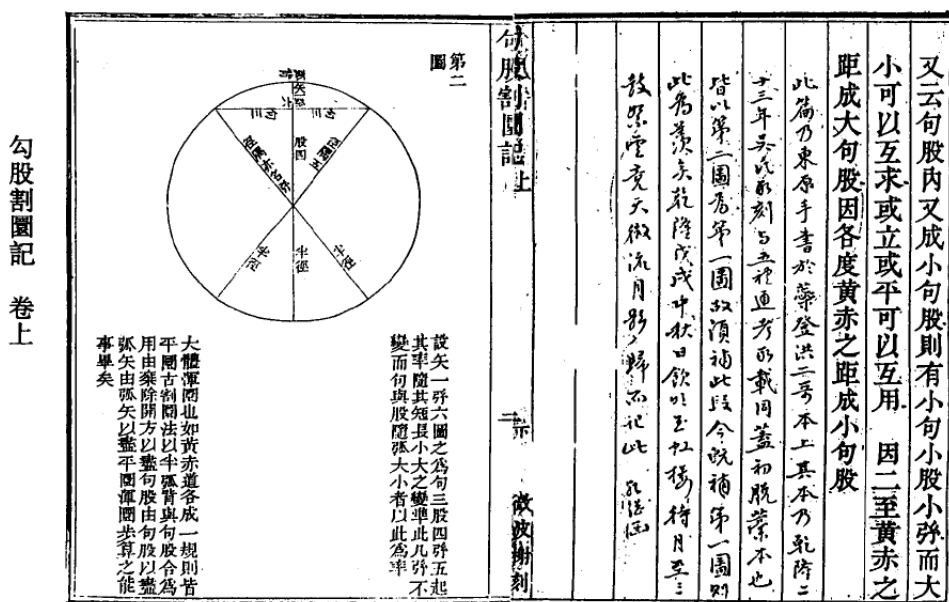 又云句股內又成小句股則有小句小股小弦而大
小可以互求或立或平可以互用 因二至黃赤之
距成大句股因各度黃赤之距成小句股
此篇乃東原手書於葉登洪二哥本上其本乃乾隆二
十三年吳氏所刻与五禮通考所載同蓋初脫藁本也
皆以第二圖為第一圖故須補此段今既補第一圖則
此為羨矣乾隆戊戌中秋日飲於玉虹樓待月至三
鼓黑雲竟天微流月影歸而記此 孔繼涵
句股割圜記上
二
微波榭刻
第二
圖
句三
句三
股四
半徑
半徑
半徑
設矢一弦六圖之為句三股四弦五起
其率隨其短長小大之變準此凡弦不
變而句與股隨弧大小者以此為率
大體渾圜也如黃赤道各成一規則皆
平圜古割圜法以半弧背與句股合為
用由乘除開方以盡句股由句股以盡
弧矢由弧矢以盡平圜渾圜步算之能
事畢矣
勾股割圜記 卷上